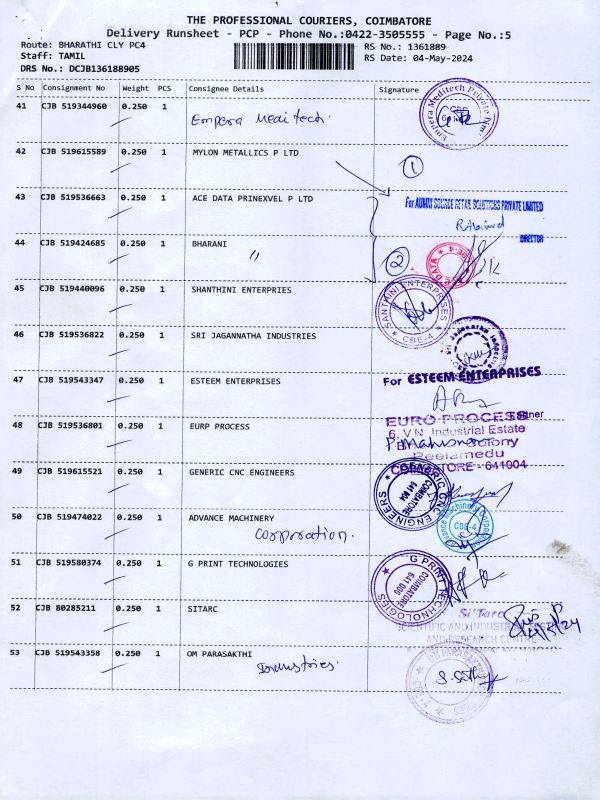 THE PROFESSIONAL COURIERS, COIMBATORE
Delivery Runsheet - PCP - Phone No.:0422-3505555 - Page No.:5
Route: BHARATHI CLY PC4 RS No.: 1361889
Staff: TAMIL RS Date: 04-May-2024
DRS No.: DCJB136188905
S No Consignment No Weight PCS Consignee Details Signature
41 CJB 519344960 0.250 1 Empera Meditech. Empera Meditech Private Limited
42 CJB 519615589 0.250 1 MYLON METALLICS P LTD 1
43 CJB 519536663 0.250 1 ACE DATA PRINEXVEL P LTD
For ADMIN SOURCE RETAIL SOLUTIONS PRIVATE LIMITED
DIRECTOR
44 CJB 519424685 0.250 1 BHARANI
" 2 DATA CBE-4
45 CJB 519440096 0.250 1 SHANTHINI ENTERPRIES SANTHINI ENTERPRISES CBE-4
46 CJB 519536822 0.250 1 SRI JAGANNATHA INDUSTRIES
47 CJB 519543347 0.250 1 ESTEEM ENTERPRISES For ESTEEM ENTERPRISES
48 CJB 519536801 0.250 1 EURP PROCESS EURO PROCESS
6, V.N. Industrial Estate
Peelamedu
COIMBATORE - 641004
49 CJB 519615521 0.250 1 GENERIC CNC ENGINEERS GENERIC CNC ENGINEERS COIMBATORE 641 004
50 CJB 519474022 0.250 1 ADVANCE MACHINERY
Corporation. CBE-4
51 CJB 519580374 0.250 1 G PRINT TECHNOLOGIES G PRINT TECHNOLOGIES COIMBATORE
52 CJB 80285211 0.250 1 SITARC Si'Tarc
SCIENTIFIC AND INDUSTRIAL
AND RESEARCH CENTRE
53 CJB 519543358 0.250 1 OM PARASAKTHI
Industries.